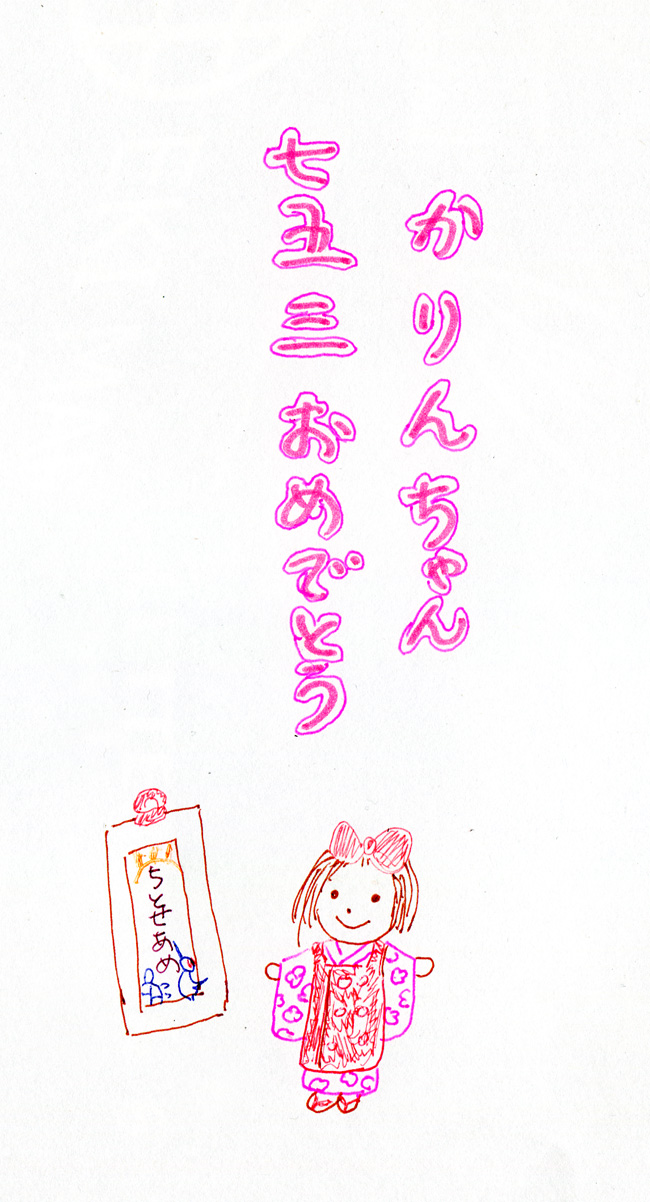 かりんちゃん
七五三 おめでとう
ちとせあめ